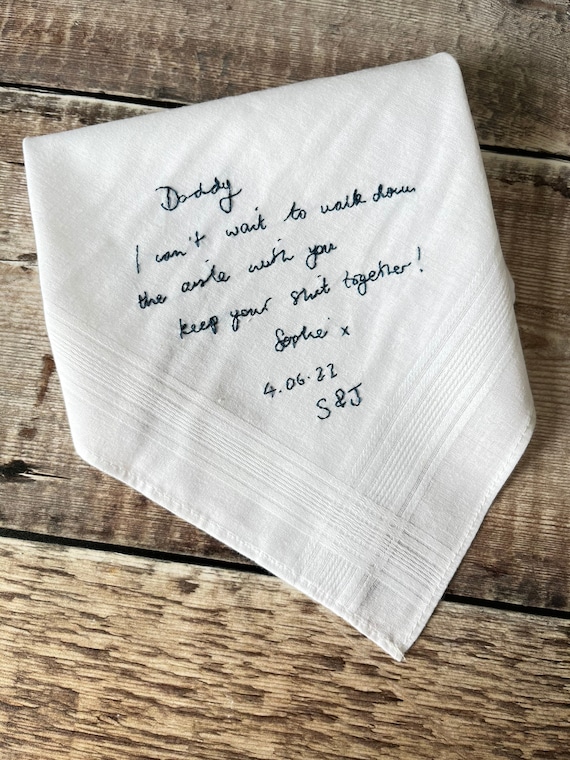 Daddy
I can't wait to walk down
the aisle with you
keep your shit together!
Sophie x
4.06.22
S&J